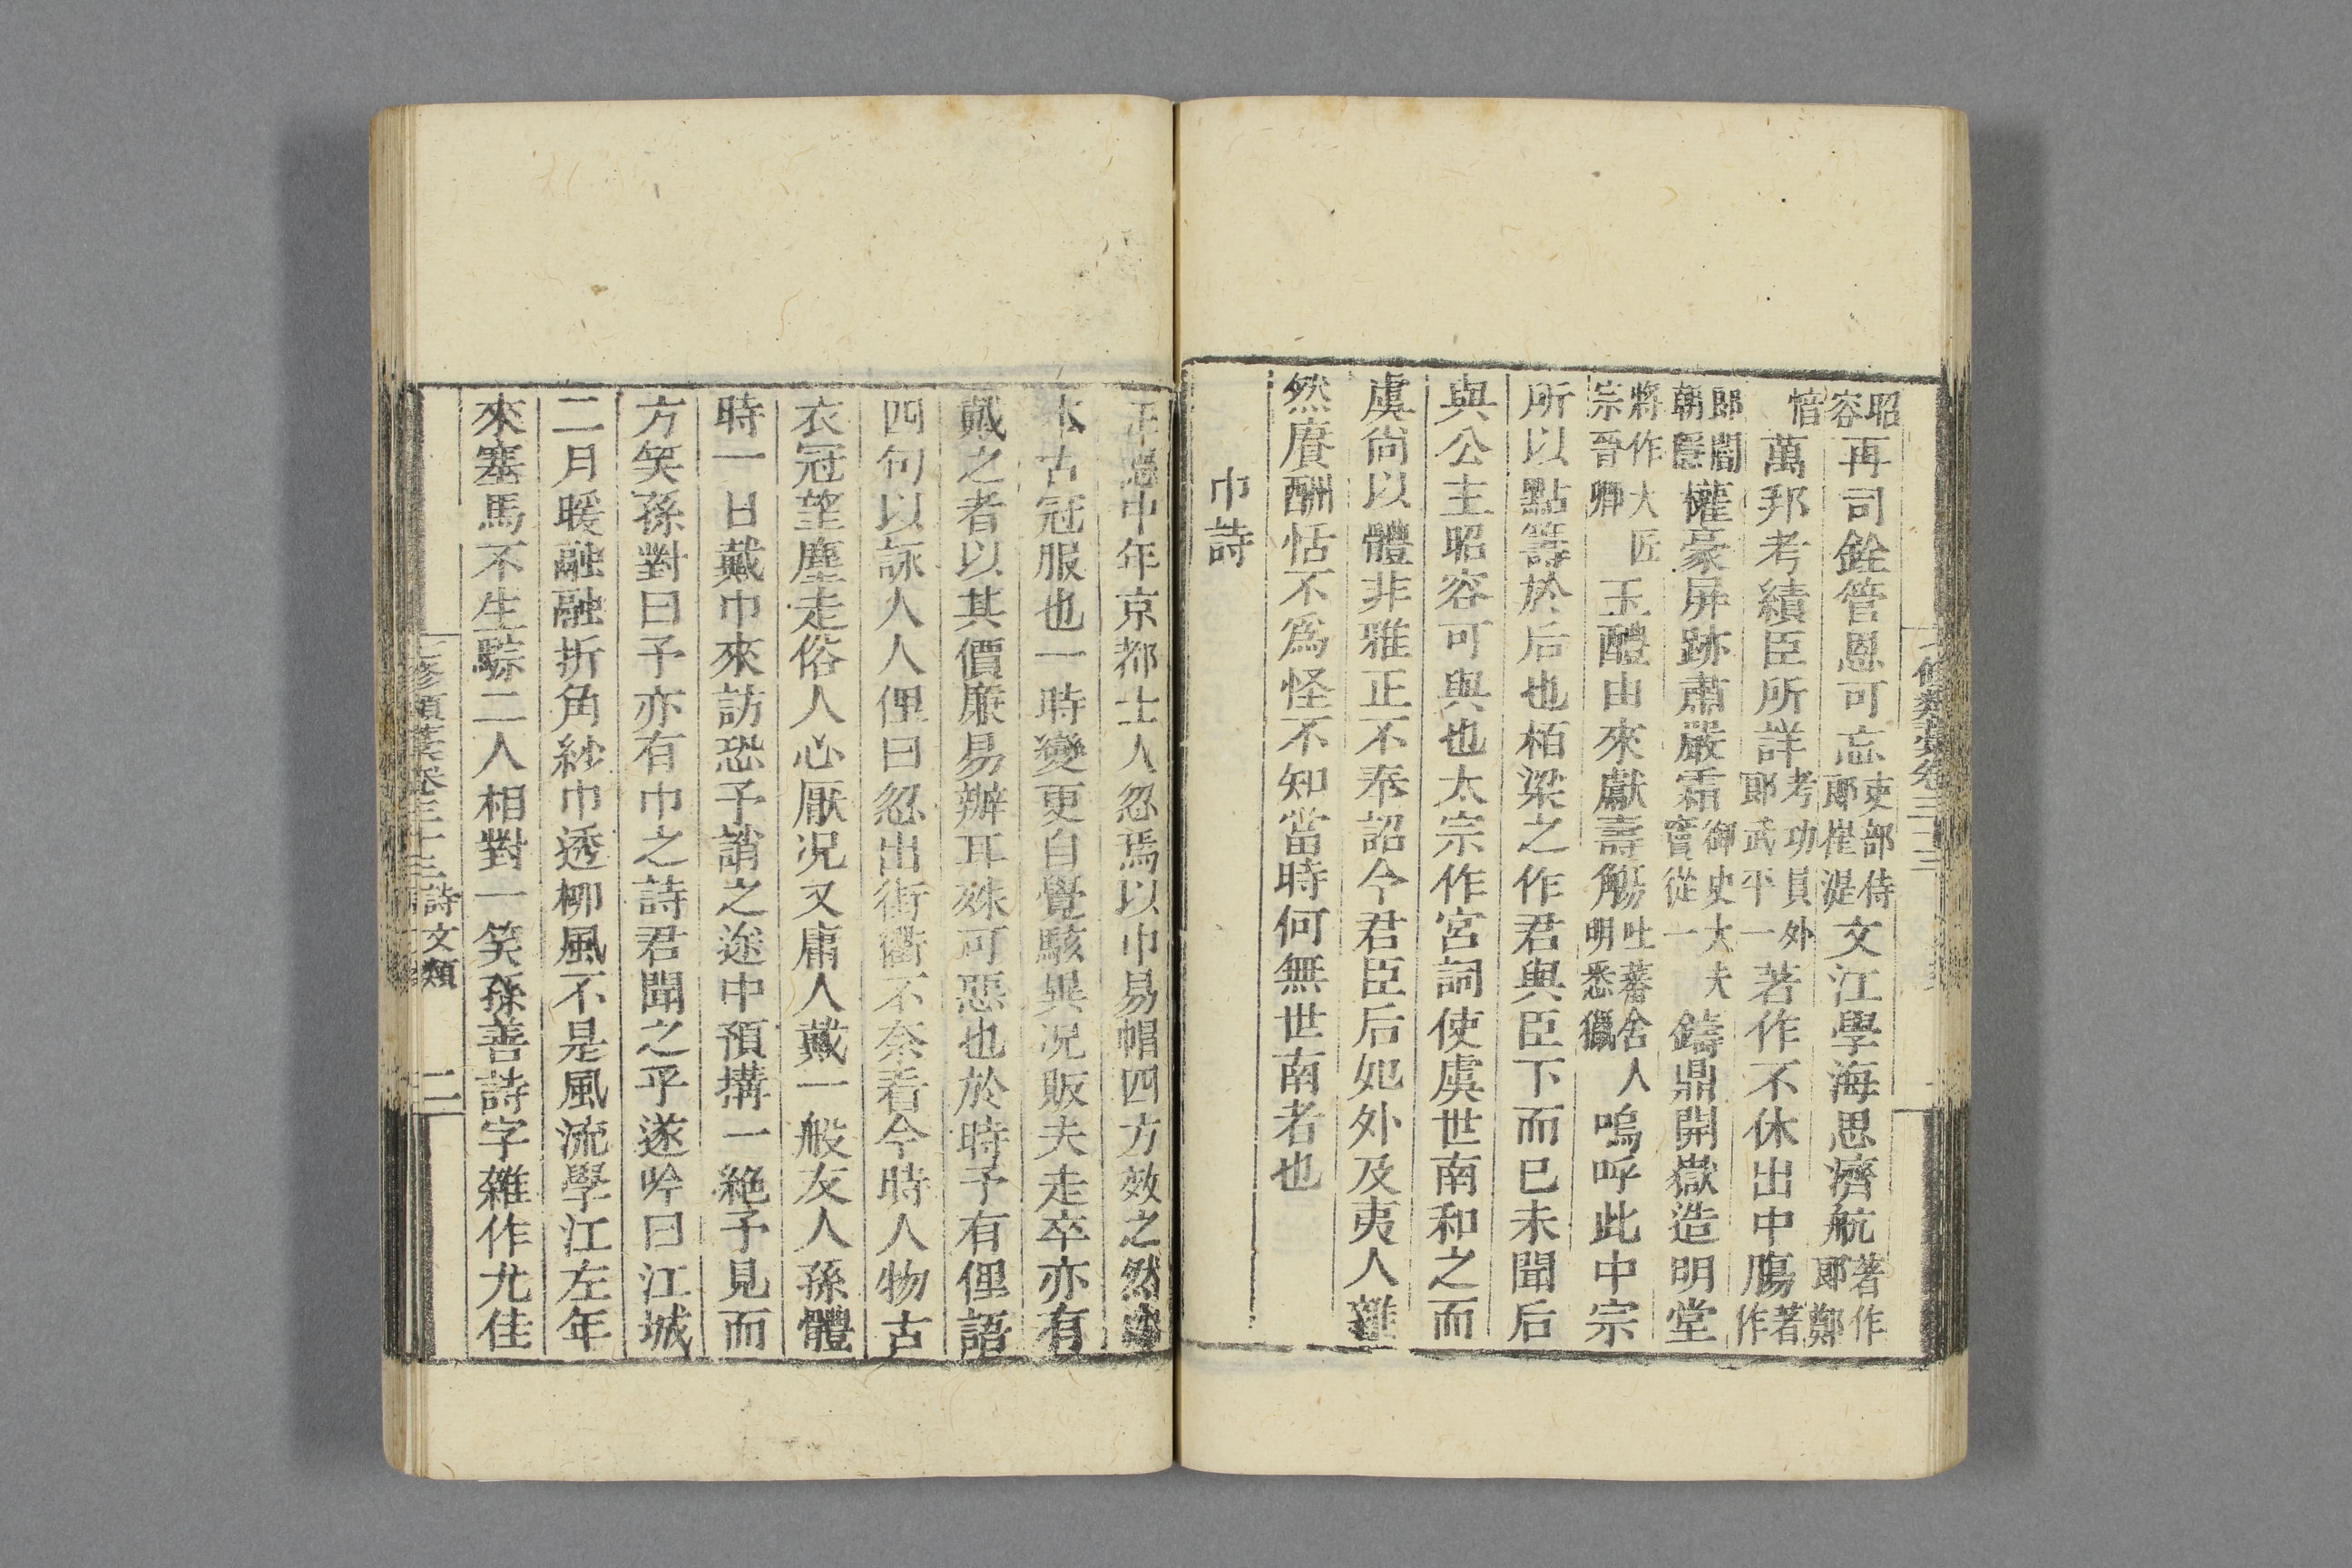 昭容再司銓管恩可忘吏部侍郎崔湜文江學海思濟航著作郎鄭
愔萬邦考績臣所詳考功員外郎武平一著作不休出中腸著作
郎閻朝隱懽豪屏跡肅嚴霜御史大夫竇從一鑄鼎開嶽造明堂
將作大匠宗晉卿玉醴由來獻壽觴吐蕃舍人明悉獵嗚呼此中宗
所以點籌於后也栢梁之作君與臣下而已未聞后
與公主昭容可與也太宗作宮詞使虞世南和之而
虞尚以體非雅正不奉詔今君臣后妃外及夷人雜
然賡酬恬不爲怪不知當時何無世南者也
巾詩
正德中年京都士人忽焉以巾易帽四方效之然
本古冠服也一時變更自覺駭異况販夫走卒亦有
戴之者以其價廉易辦耳殊可惡也於時予有俚語
四句以詠人人俚曰忽出街衢不奈看今時人物古
衣冠望塵走俗人心厭况又庸人戴一般友人孫體
時一日戴巾來訪恐予誚之途中預搆一絶予見而
方笑孫對曰予亦有巾之詩君聞之乎遂吟曰江城
二月暖融融折角紗巾透柳風不是風流學江左年
來塞馬不生騣二人相對一笑孫善詩字雜作尤佳
修類藁卷三十三 詩文類 二